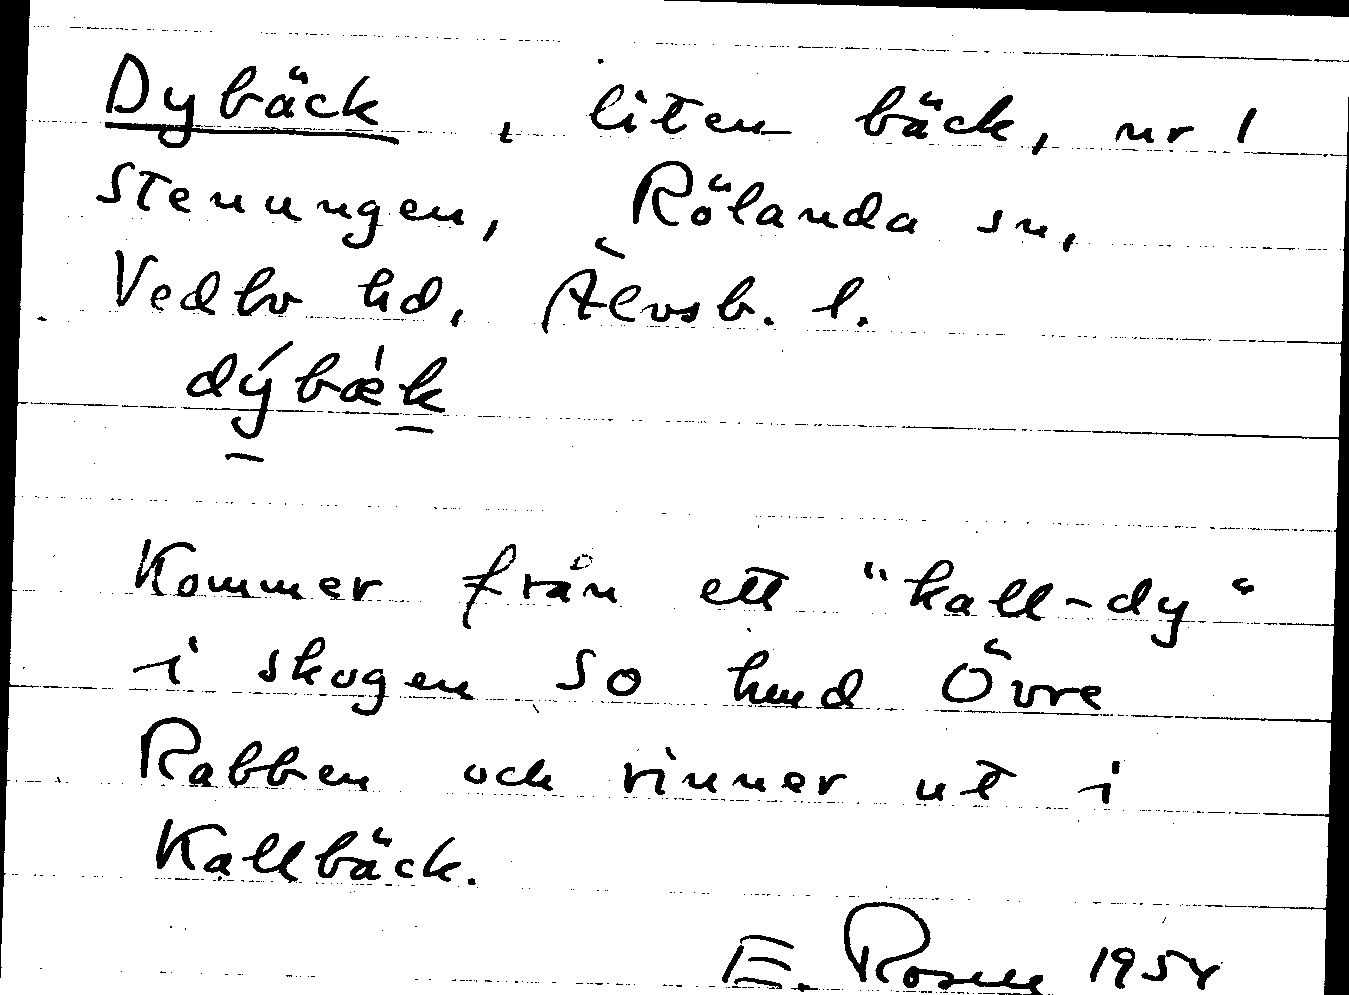 Dybäck, liten bäck, nr 1
Stenungen, Rölanda sn,
Vedbo hd, Älvsb. l.
dýbæ̀k
Kommer från ett "kall-dy"
i skogen SO hmd Övre
Rabben och rinner ut i
Kallbäck.
E. Rosell 1954